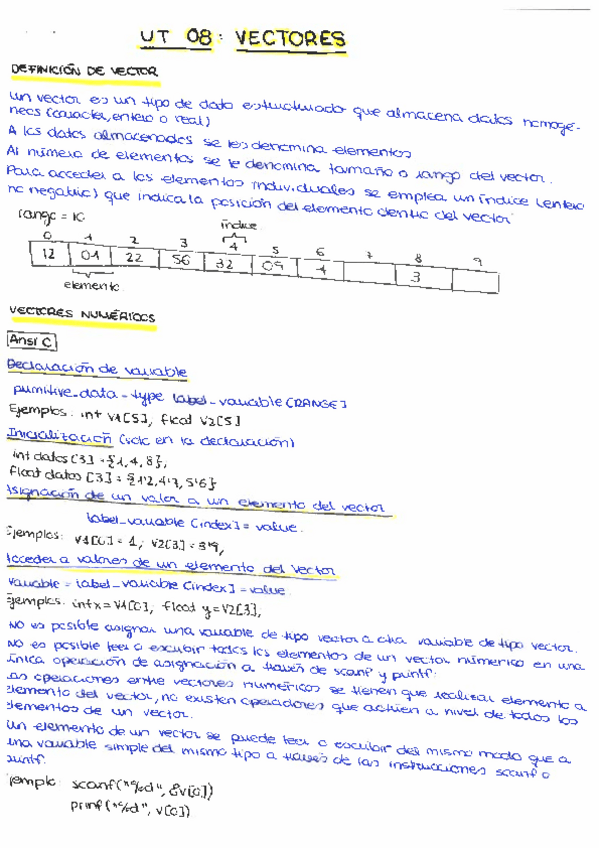 UT 08: VECTORES
DEFINICIÓN DE VECTOR
Un vector es un tipo de dato estructurado que almacena datos homogé-
neos (caracter, entero o real)
A los datos almacenados se les denomina elementos
Al número de elementos se le denomina tamaño o rango del vector.
Para acceder a los elementos individuales se emplea un índice (entero
no negativo) que indica la posición del elemento dentro del vector
rango = 10
índice
0 1 2 3 4 5 6 7 8 9
12 01 22 56 32 09 1 3
elemento
VECTORES NUMÉRICOS
Ansi C
Declaración de variable
primitive_data_type label_variable [RANGE]
Ejemplos: int V1[5], float V2[5]
Inicialización (solo en la declaración)
int datos [3] = {1, 4, 8},
float datos [3] = {1'2, 4'7, 5'6}
Asignación de un valor a un elemento del vector
label_variable [index] = value.
Ejemplos: V1[0] = 1; V2[3] = 3'9,
Acceder a valores de un elemento del vector
Variable = label_variable [index] = value
Ejemplos: int x = V1[0], float y = V2[3],
No es posible asignar una variable de tipo vector a otra variable de tipo vector.
No es posible leer o escribir todos los elementos de un vector númerico en una
única operación de asignación a través de scanf y printf.
Las operaciones entre vectores numéricos se tienen que realizar elemento a
elemento del vector, no existen operadores que actúen a nivel de todos los
elementos de un vector.
Un elemento de un vector se puede leer o escribir del mismo modo que a
una variable simple del mismo tipo a traves de las instrucciones scanf o
printf.
Ejemplo: scanf("%d", &v[0])
prinf("%d", v[0])